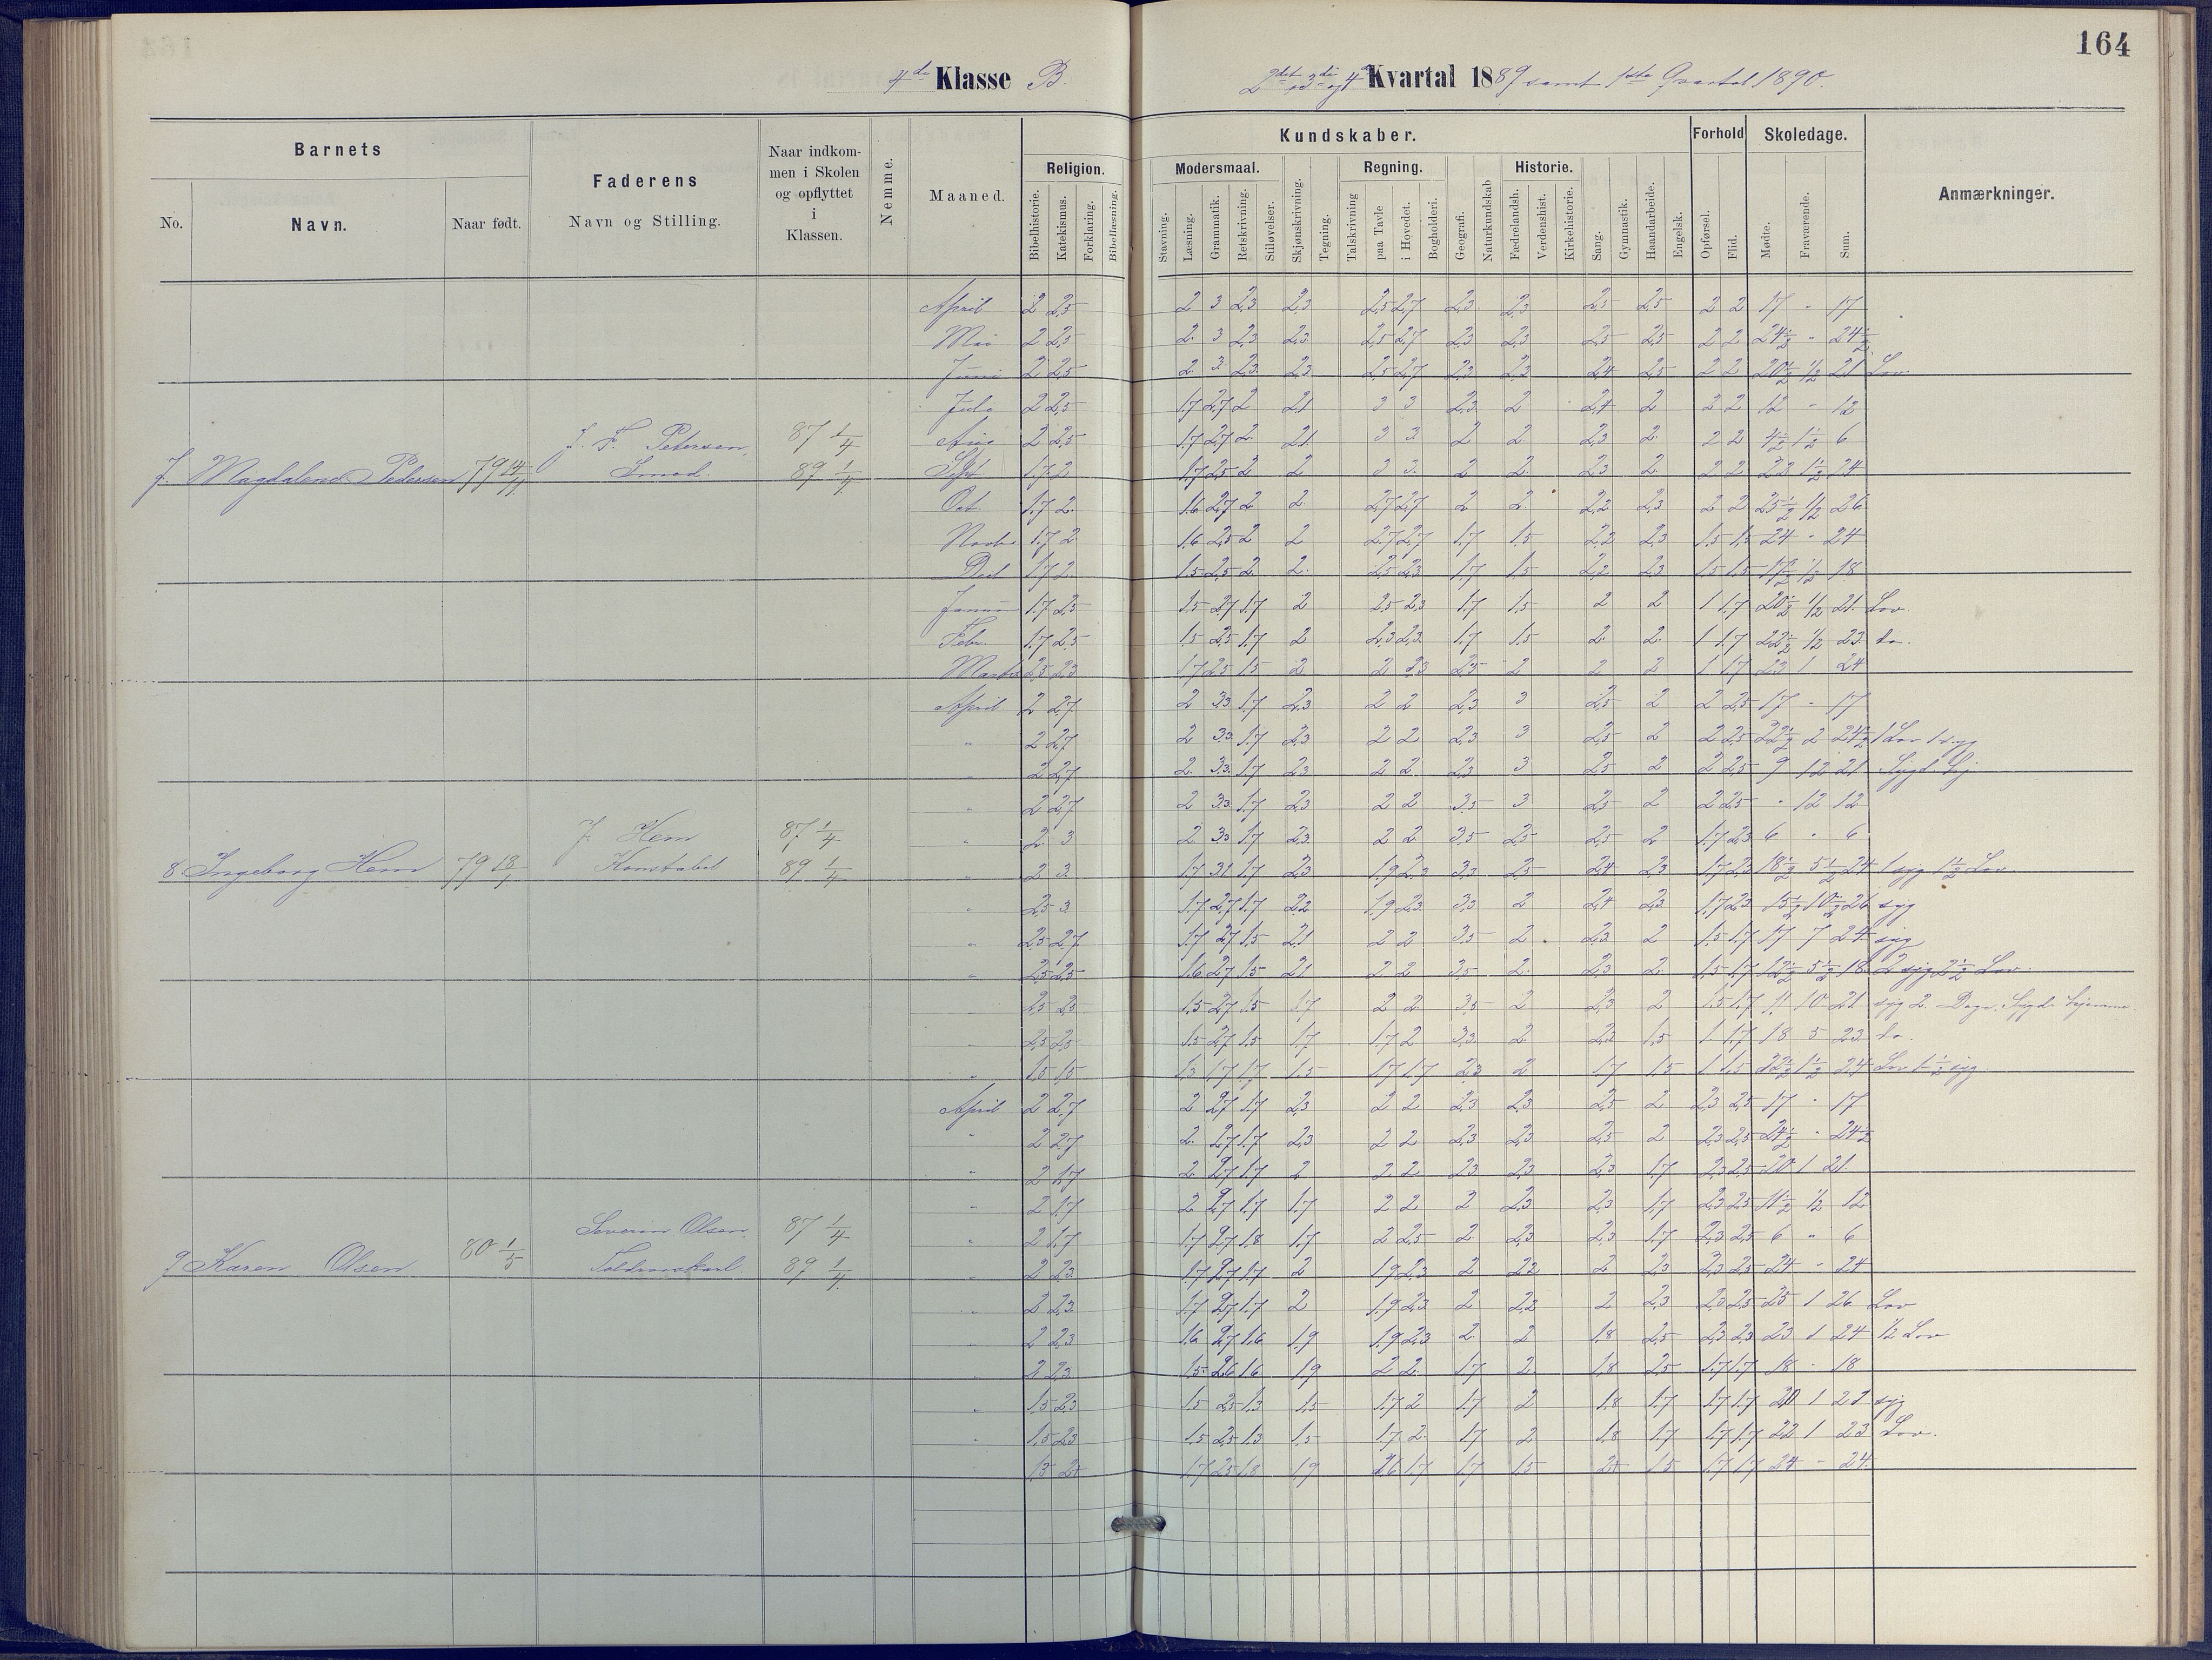 164
4de Klasse B.
2det 3die og 4de Kvartal 1889 samt 1ste Qvartal 1890.
Barnets
No.
Navn.
Naar født.
Faderens
Navn og Stilling.
Naar indkom-
men i Skolen
og opflyttet
i
Klassen.
Nemme.
Maaned.
Kundskaber.
Religion.
Bibelhistorie.
Katekismus.
Forklaring.
Bibellæsning.
Modersmaal.
Stavning.
Læsning.
Grammatik.
Retskrivning.
Stiløvelser.
Skjønskrivning.
Tegning.
Regning.
Talskrivning
paa Tavle
i Hovedet.
Bogholderi.
Geografi.
Naturkundskab
Historie.
Fædrelandsh.
Verdenshist.
Kirkehistorie.
Sang.
Gymnastik.
Haandarbeide.
Engelsk.
Forhold
Opførsel.
Flid.
Skoledage.
Mødte.
Fraværende.
Sum.
Anmærkninger.
April 2 2,5 2 3 2,3 2,3 2,5 2,7 2,3 2,3 2,5 2,5 2 2 17 - 17
Mai 2 2,5 2 3 2,3 2,3 2,5 2,7 2,3 2,3 2,5 2,5 2 2 24 1/2 - 24 1/2
Juni 2 2,5 2 3 2,3 2,3 2,5 2,7 2,3 2,3 2,4 2,5 2 2 20 1/2 1/2 21 Lov
Juli 2 2,5 1,7 2,7 2 2,1 3 3 2,3 2 2,4 2 2 2 12 - 12
J. F. Petersen, 87 1/4 Aug 2 2,5 1,7 2,7 2 2,1 3 3 2 2 2,3 2 2 2 4 1/2 1 1/2 6
7. Magdalena Pedersen 79 14/11 Smed. 89 1/4 Spt 1,7 2 1,7 2,5 2 2 3 3 2 2 2,3 2 2 2 22 1 1/2 24
Oct. 1,7 2 1,6 2,7 2 2 2,7 2,7 2 2 2,2 2,3 2 2 25 1/2 1/2 26
Novbr 1,7 2 1,6 2,5 2 2 2,7 2,7 1,7 1,5 2,2 2,3 1,5 1,5 24 - 24
Decb 1,7 2 1,5 2,5 2 2 2,5 2,3 1,7 1,5 2,2 2,3 1,5 1,5 17 1/2 1/2 18
Janua 1,7 2,5 1,5 2,7 1,7 2 2,5 2,3 1,7 1,5 2 2 1 1,7 20 1/2 1/2 21 Lov.
Febr. 1,7 2,5 1,5 2,5 1,7 2 2,3 2,3 1,7 1,5 2 2 1 1,7 22 1/2 1/2 23 do.
Marts 2,5 2,3 1,7 2,5 1,5 2 2 2,3 2,5 2 2 2 1 1,7 23 1 24
April 2 2,7 2 3,3 1,7 2,3 2 2 2,3 3 2,5 2 2 2,5 17 - 17
" 2 2,7 2 3,3 1,7 2,3 2 2 2,3 3 2,5 2 2 2,5 22 1/2 2 24 1/2 1 Lov 1 syg
" 2 2,7 2 3,3 1,7 2,3 2 2 2,3 3 2,5 2 2 2,5 9 12 21 Sygd. hj
" 2 2,7 2 3,3 1,7 2,3 2 2 3,5 3 2,5 2 2 2,5 - 12 12
J. Hem 87 1/4 " 2 3 2 3,3 1,7 2,3 2 2 3,5 2,5 2,5 2 1,7 2,3 6 - 6
8 Ingeborg Hem 79 18/1 Konstabel 89 1/4 " 2 3 1,7 3,1 1,7 2,3 1,9 2,3 3,3 2,5 2,4 2,3 1,7 2,3 18 1/2 5 1/2 24 1 syg 1 1/2 Lov.
" 2,5 3 1,7 2,7 1,7 2,2 1,9 2,3 3,3 2 2,4 2,3 1,7 2,3 15 1/2 10 1/2 26 syg
" 2,5 2,7 1,7 2,7 1,5 2,1 2 2 3,5 2 2,3 2 1,5 1,7 17 7 24 syg
" 2,5 2,5 1,6 2,7 1,5 2,1 2 2 3,5 2 2,3 2 1,5 1,7 12 1/2 5 1/2 18 2 syg 2 1/2 Lov.
" 2,5 2,5 1,5 2,7 1,5 1,7 2 2 3,5 2 2,3 2 1,5 1,7 11 10 21 syg 2 Dage. Sygd. hjemme.
" 2,5 2,5 1,5 2,7 1,5 1,7 1,7 2 3,3 2 2,3 1,5 1 1,7 18 5 23 do.
" 1,5 1,5 1,3 1,7 1,7 1,5 1,7 1,7 2,3 2 1,7 1,5 1 1,5 22 1/2 1 1/2 24 Lov 1 1/2 syg
April 2 2,7 2 2,7 1,7 2,3 2 2 2,3 2,3 2,5 2 2,3 2,5 17 - 17
" 2 2,7 2 2,7 1,7 2,3 2 2 2,3 2,3 2,5 2 2,3 2,5 24 1/2 - 24 1/2
" 2 1,7 2 2,7 1,7 2 2 2 2,3 2,3 2,3 1,7 2,3 2,5 20 1 21
" 2 1,7 2 2,7 1,7 1,7 2 2 2 2,3 2,3 1,7 2,3 2,5 11 1/2 1/2 12
Severin Olsen. 87 1/4 " 2 1,7 1,7 2,7 1,8 1,7 2 2,5 2 2,3 2,3 1,7 2,3 2,5 6 " 6
9 Karen Olsen 80 1/5 89 1/4 " 2 2,3 1,7 2,7 1,7 2 1,9 2,3 2 2,2 2 2,3 2,3 2,5 24 - 24
" 2 2,3 1,7 2,7 1,7 2 1,9 2,3 2 2,2 2 2,3 2,3 2,5 25 1 26 Lov
" 2 2,3 1,6 2,7 1,6 1,9 1,9 2,3 2 2 1,8 2,5 2,3 2,3 23 1 24 1/2 Lov
" 2 2,3 1,5 2,6 1,6 1,9 2 2 1,7 2 1,8 2,5 1,7 1,7 18 - 18
" 1,5 2,3 1,5 2,5 1,3 1,5 1,7 2 1,7 2 1,8 1,7 1,7 1,7 20 1 21 syg
" 1,5 2,3 1,5 2,5 1,3 1,5 1,7 2 1,7 2 1,8 1,7 1,7 1,7 22 1 23 Lov.
1,3 2+ 1,7 2,5 1,8 1,9 1,6 1,7 1,7 1,5 2+ 1,5 1,7 1,7 24 - 24